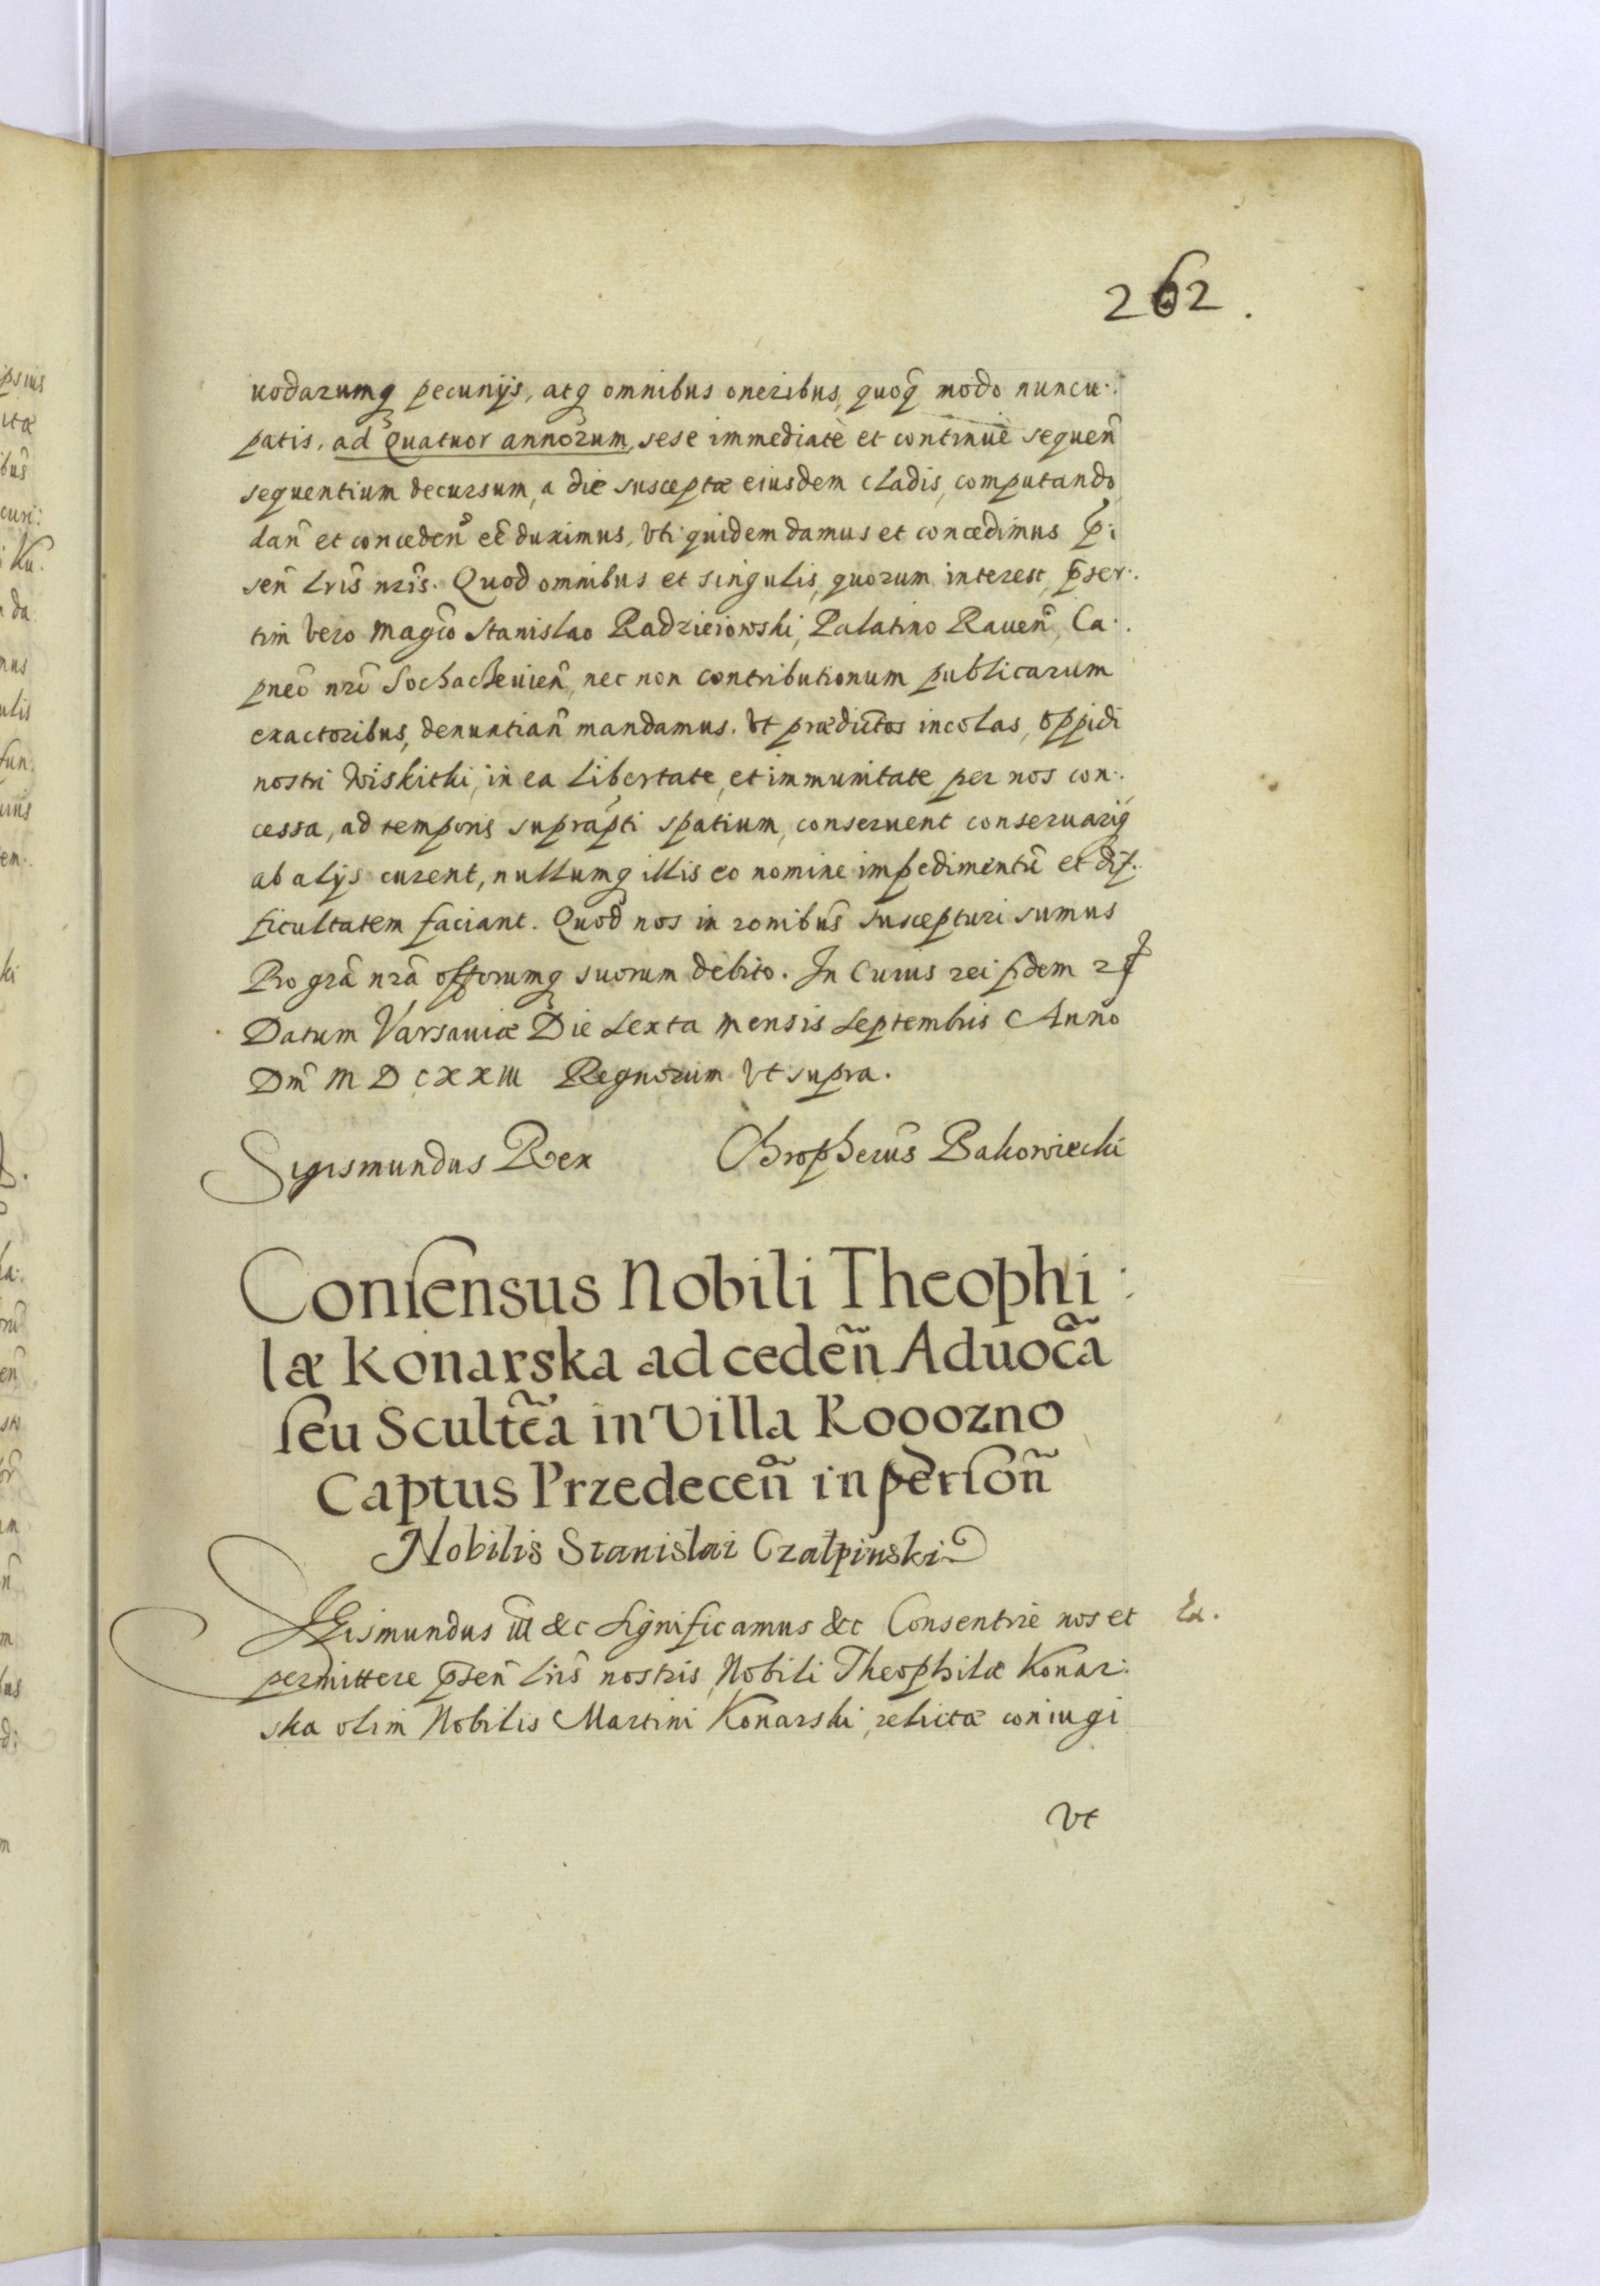 262.
uodarumq pecunijs, atq omnibus oneribus, quoq modo nuncu:
patis, ad quatuor annorum, sese immediatè et continuè sequen̄
sequentium decursum, a die susceptæ eiusdem cladis, computando
dan̄ et conceden̄ eē duximus, vti quidem damus et concedimus p̄:
sen̄ Lris nris. Quod omnibus et singulis, quorum interest, p̄ser:
tim vero Magco Stanislao Radzieiowski, Palatino Rauen̄, Ca:
pneo nro Sochacheuien̄, nec non contributionum publicarum
exactoribus, denuntian̄ mandamus. Vt prædictos incolas, oppidi
nostri Wiskithi, in ea libertate, et immunitate per nos con:
cessa, ad temporis suprapti spatium, conseruent conseruariq
ab alijs curent, nullumq illis eo nomine impedimentū et dif:
ficultatem faciant. Quod nos in ronibus suscepturi sumus
Pro gra nra offorumq suorum debito. In Cuius rei fidem
Datum Varsauiæ Die Sexta Mensis Septembris Anno
Dni M D C X X III Regnorum vt supra.
Sigismundus Rex Chropherus Bakowiecki
Consensus Nobili Theophi:
læ Konarska ad ceden̄ Aduoc̄a
seu Sculte̅a in Villa Rooozno
Captus Przedecen̄ in person̄
Nobilis Stanislai Czalpinski
Sigismundus III &c Significamus &c Consentire nos et
Ex.
permittere p̄sen̄ Lris nostris Nobili Theophilæ Konar:
ska olim Nobilis Martini Konarski, relictæ coniugi
vt